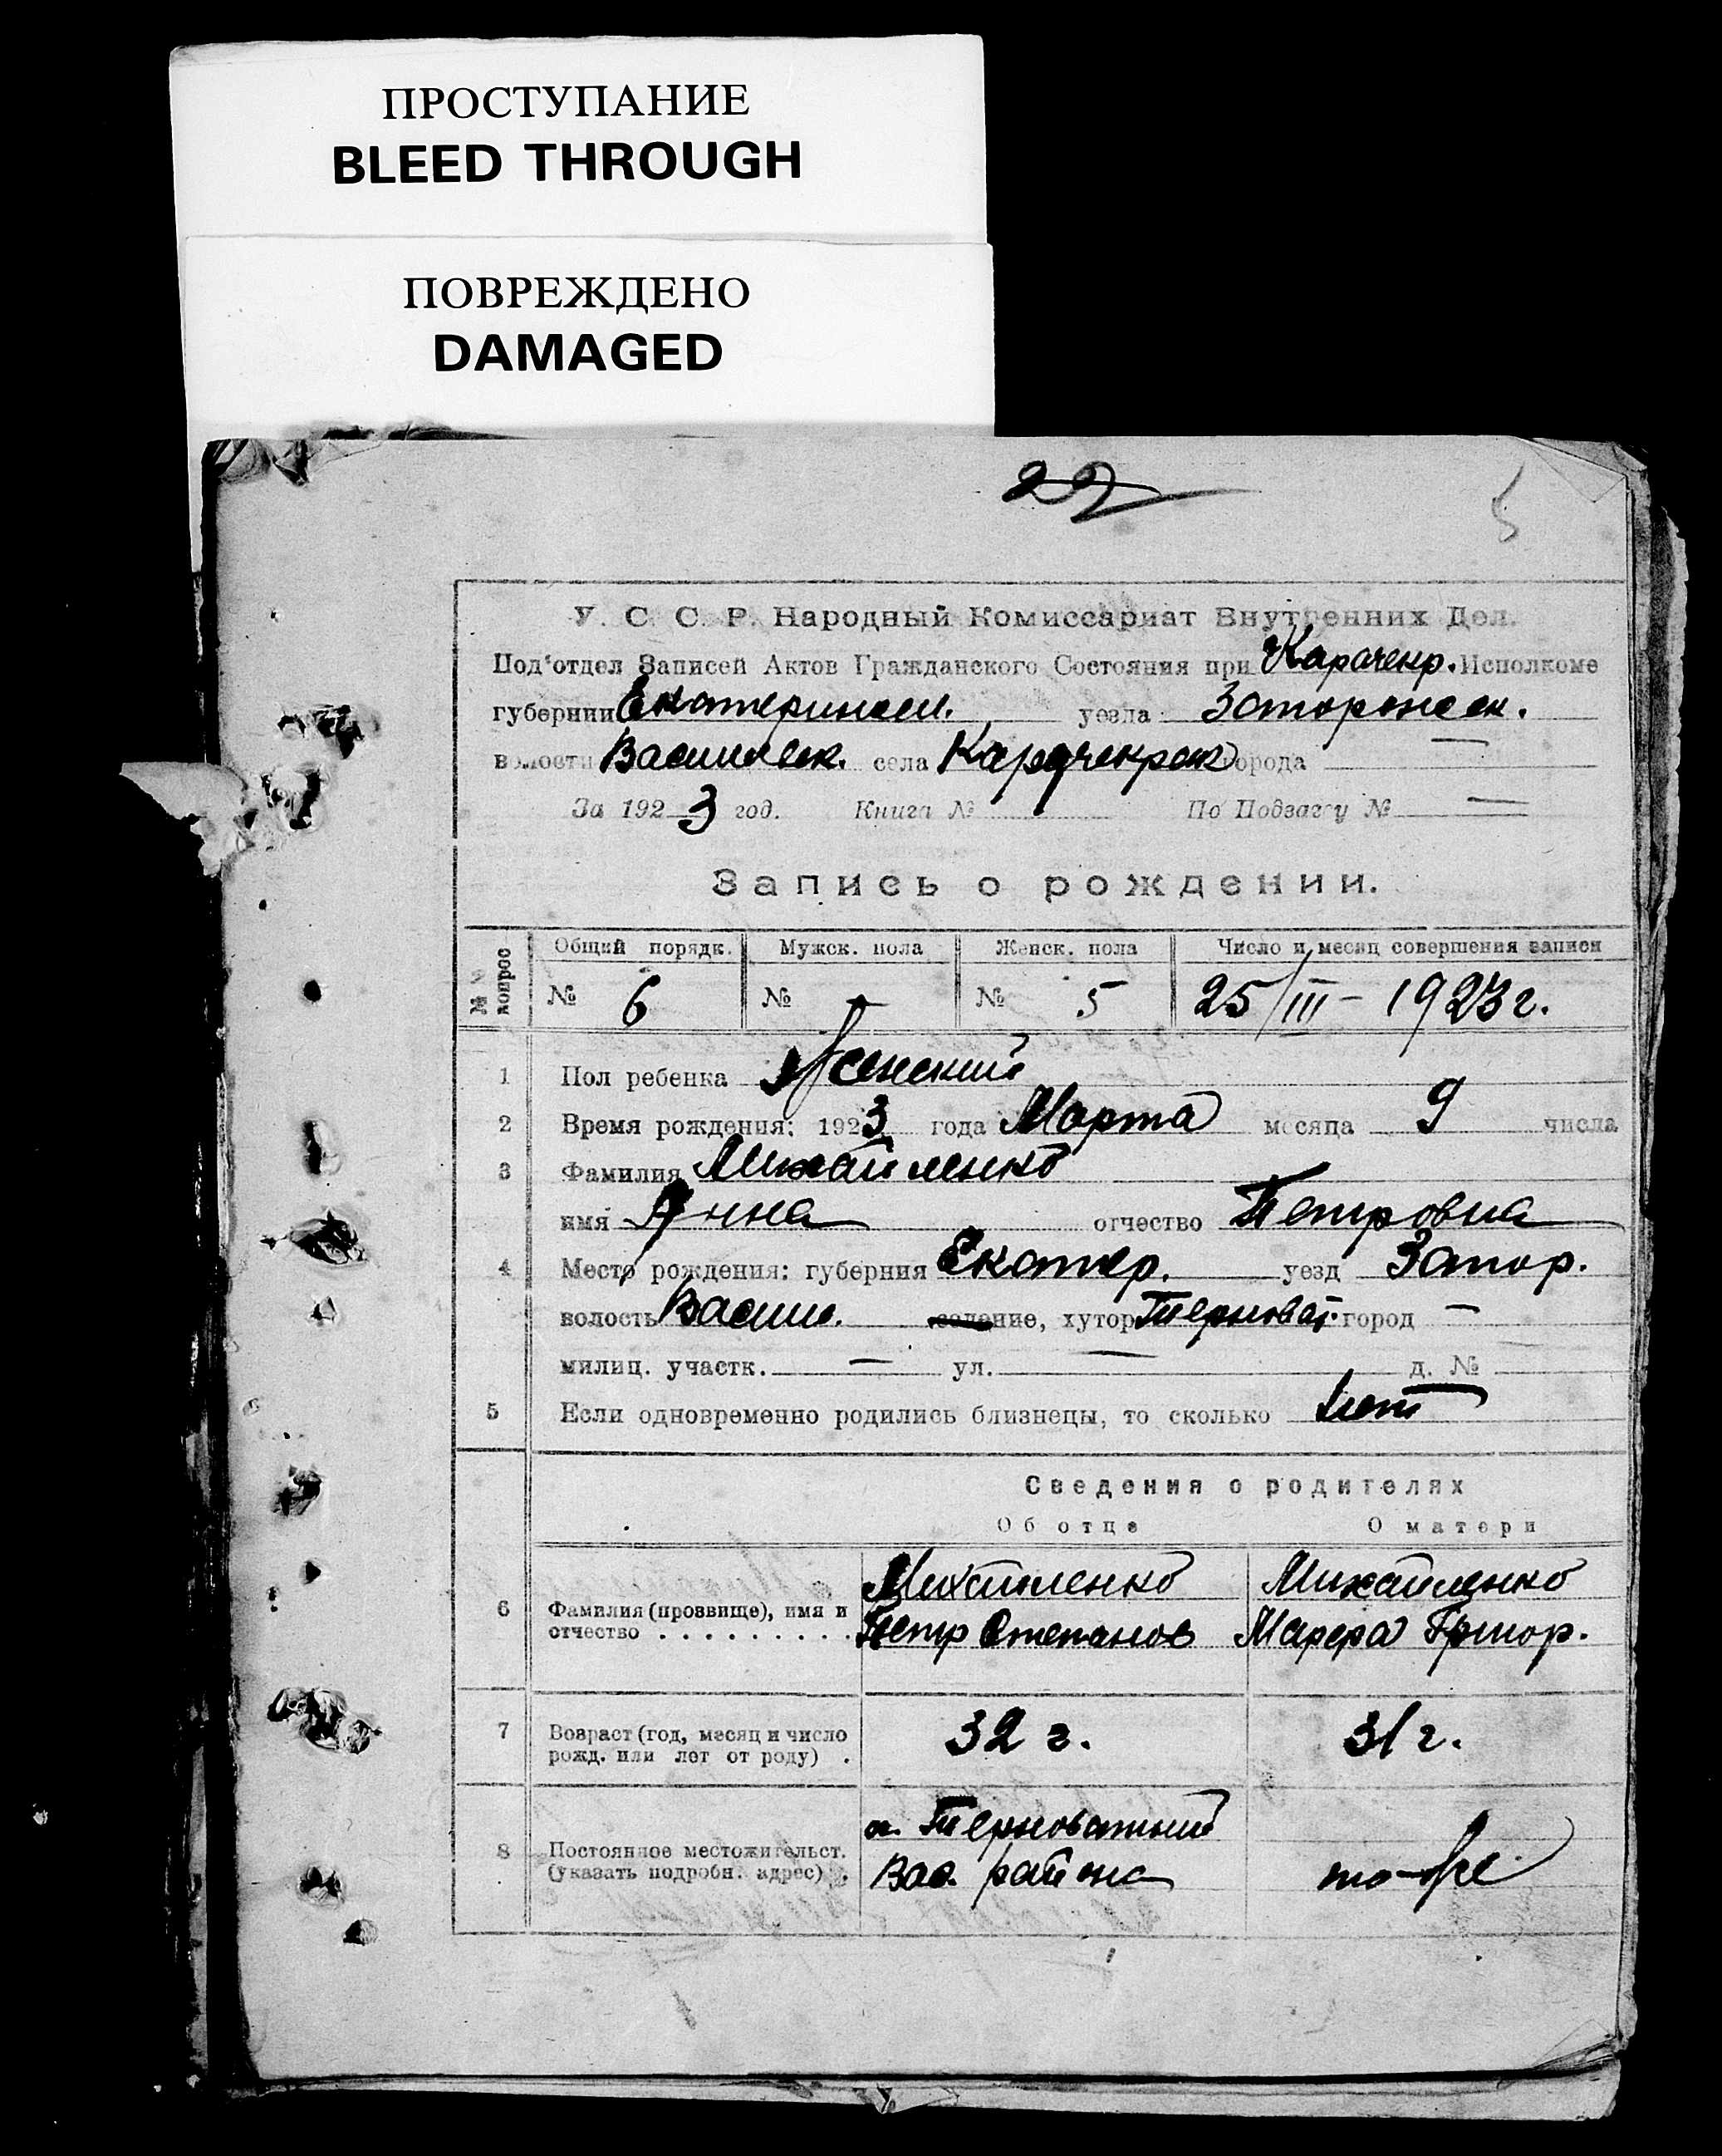 ПРОСТУПАНИЕ
BLEED THROUGH
ПОВРЕЖДЕНО
DAMAGED
22
5
У. С. С. Р. Народный Комиссариат Внутренних Дел.
Под'отдел Записей Актов Гражданского Состояния при Караченр. Исполкоме
губернии Екатеринсл. уезда Запорожск.
волости Васильевк. села Карачекрак города —
За 1923 год. Книга № По Подзагсу № —
Запись о рождении.
№№ вопрос Общий порядк. Мужск. пола Женск. пола Число и месяц совершения записи
№ 6 № — № 5 25/III – 1923 г.
1 Пол ребенка Женский
2 Время рождения: 1923 года Марта месяца 9 числа
3 Фамилия Михайленко
имя Анна отчество Петровна
4 Место рождения: губерния Екатер. уезд Запор.
волость Васил. селение, хутор Терноват. город —
милиц. участк. — ул. — д. №
5 Если одновременно родились близнецы, то сколько нет
Сведения о родителях
Об отце О матери
Михайленко Михайленко
6 Фамилия (прозвище), имя и
отчество . . . . . . . . . Петр Степанов Марфа Григор.
7 Возраст (год, месяц и число
рожд. или лет от роду) . 32 г. 31 г.
х. Терноватый
8 Постоянное местожительст.
(указать подробн. адрес) . Вас. района то-же